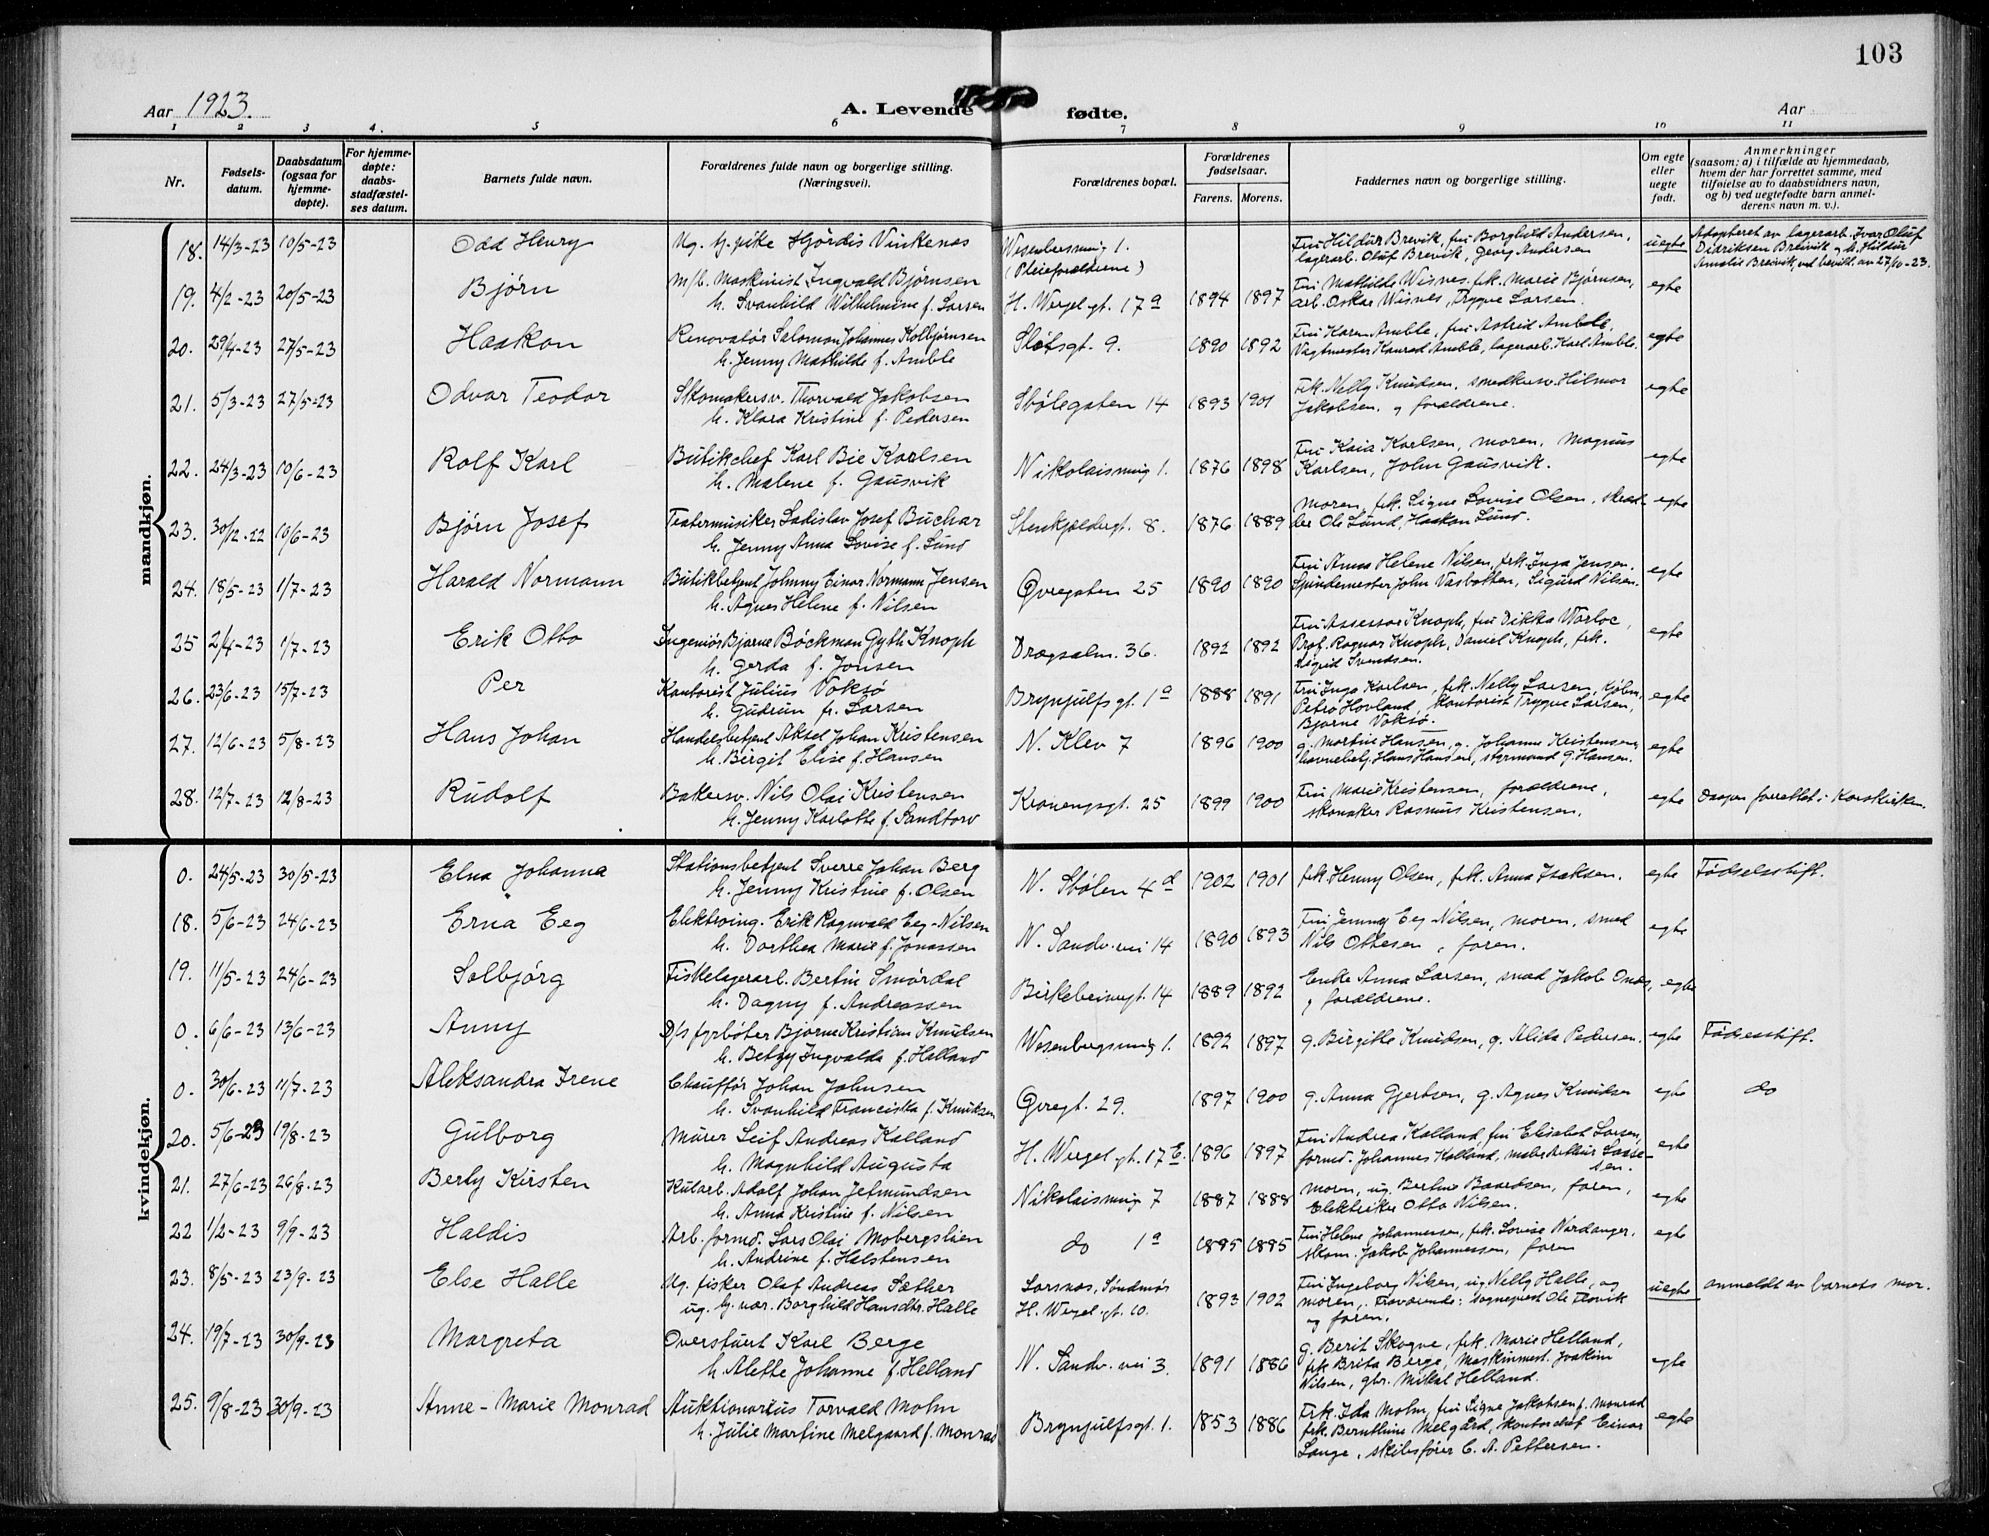 103
Aar 1923.
A. Levende fødte.
Aar
1 2 3 4. 5 6 7 8 9 10 11
Nr.
Fødsels-
datum.
Daabsdatum
(ogsaa for
hjemme-
døpte).
For hjemme-
døpte:
daabs-
stadfæstel-
ses datum.
Barnets fulde navn.
Forældrenes fulde navn og borgerlige stilling.
(Næringsvei).
Forældrenes bopæl.
Forældrenes
fødselsaar.
Farens. Morens.
Faddernes navn og borgerlige stilling.
Om egte
eller
uegte
født.
Anmerkninger
(saasom: a) i tilfælde av hjemmedaab,
hvem der har forrettet samme, med
tilføielse av to daabsvidners navn,
og b) ved uegtefødte barn anmel-
derens navn m. v.).
mandkjøn.
18. 14/3-23 10/5-23 Odd Henry
Ug. tj. pike Hjördis Vinkenes
Wesenbersmug 1.
(Pleieforældrene)
Fru Hildur Brevik, fru Borghild Andersen,
lagerarb. Oluf Brevik, Georg Andersen
uegte
Adopteret av lagerarb. Ivar Oluf
Didriksen Breivik og h. Hildur
Amalie Breivik, ved bevill. av 27/10-23.
19. 4/2-23 20/5-23 Bjørn
m/b. Maskinist Ingvald Bjørnsen
h. Svanhild Wilhelmine f. Larsen
H. Wergel. gt. 17a 1894 1897
Fru Mathilde Wisnes, frk. Marie Bjørnsen,
arb. Oskar Wisnes, Trygve Larsen.
egte
20. 29/4-23 27/5-23 Haakon
Renovatør Salomon Johannes Kolbjørnsen
h. Jenny Mathilde f. Amble
Slotsgt. 9. 1890 1892
Fru Karen Amble, fru Astrid Amble,
Vagtmester Konrad Amble, lagerarb. Karl Amble.
egte
21. 5/3-23 27/5-23 Odvar Teodor
Skomakersv. Thorvald Jakobsen
h. Klara Kristine f. Pedersen
Stölegaten 14 1893 1901
Frk. Nelly Knudsen, smedkersv. Hilmar
Jakobsen, og forældrene.
egte
22. 24/3-23 10/6-23 Rolf Karl
Butikchef Karl Bie Karlsen
h. Malene f. Gausvik
Nikolaismug 1. 1876 1898
Fru Kaia Karlsen, moren, Magnus
Karlsen, John Gausvik.
egte
23. 30/12-22 10/6-23 Bjørn Josef
Teatermusiker Ladislav Josef Buchar
h. Jenny Anna Lovise f. Lund
Stenkjeldergt. 8. 1876 1889
moren, frk. Signe Lovise Olsen, skræd-
der Ole Lund, Haakon Lund.
egte
24. 18/5-23 1/7-23 Harald Normann
Butikbetjent Johnny Einar Normann Jensen
h. Agnes Helene f. Nilsen
Øvregaten 25 1890 1890
Fru Anna Helene Nilsen, frk. Inga Jensen.
Spindemester John Vasbotten, Sigurd Nilsen.
egte
25 2/4-23 1/7-23 Erik Otto
Ingeniør Bjarne Böckman Gyth Knoph
h. Gerda f. Jonsen
Drægsalm. 36. 1892 1892
Fru Assessor Knoph, fru Dikka Warloe,
Prof. Ragnar Knoph, Daniel Knoph, frk.
Sigrid Svendsen.
egte
26. 23/6-23 15/7-23 Per
Kontorist Julius Voksö
h. Gudrun f. Larsen
Brynjulfs gt. 1a 1888 1891
Fru Inga Karlsen, frk. Nelly Larsen, kjøbm.
Petro Hovland, kontorist Trygve Larsen,
Bjarne Voksö.
egte
27. 12/6-23 5/8-23 Hans Johan
Handelsbetjent Aksel Johan Kristensen
h. Birgit Elise f. Hansen
N. Klev 7 1896 1900
g. Martine Hansen, g. Johanne Kristensen,
havnebetj. Hans Hansen, styrmand G. Hansen.
egte
28. 12/7-23 12/8-23 Rudolf
Bakersv. Nils Olai Kristensen
h. Jenny Karlotte f. Sandtorv
Kroneng.gt. 25 1899 1900
Fru Marie Kristensen, forældrene,
skomaker Rasmus Kristensen.
egte
Daapen forrettet i Korskirken.
kvindekjøn.
0. 24/5-23 30/5-23 Elna Johanna
Stationsbetjent Sverre Johan Berg
h. Jenny Kristine f. Olsen
N. Stölen 4d 1902 1901
frk. Henny Olsen, frk. Anna Isaksen.
egte
Fødselsstift.
18. 5/6-23 24/6-23 Erna Eeg
Elektroing. Erik Ragnvald Eeg-Nilsen
h. Dorthea Marie f. Jonassen
N. Sandv.vei 14 1890 1893
Fru Jenny Eeg Nilsen, moren, smed
Nils Ottesen, faren.
egte
19. 11/5-23 24/6-23 Solbjørg
Fiskelagerarb. Bertin Smördal
h. Dagny f. Andreassen
Birkebeinergt. 14 1889 1892
Enke Anna Larsen, smed Jakob Onæs,
og forældrene.
egte
0. 6/6-23 13/6-23 Anny
D/s fyrbøter Bjarne Kristian Knudsen
h. Betzy Ingvalda f. Helland
Wesenbergsmug 1. 1892 1897
g. Birgitte Knudsen, g. Alida Pedersen.
egte
Fødsesstift.
0. 30/6-23 11/7-23 Aleksandra Irene
Chauffør Johan Johnsen
h. Svanhild Franciska f. Knudsen
Øvregt. 29. 1897 1900
g. Anna Gjertsen, g. Agnes Knudsen
egte
do
20. 5/6-23 19/8-23 Gulborg
Murer Leif Andreas Kalland
h. Magnhild Augusta
H. Wergel. gt. 17E. 1896 1897
Fru Andrea Kalland, fru Elisabet Larsen,
formd. Johannes Kalland, maler Arthur Lasse-
sen.
egte
21. 27/6-23 26/8-23 Berly Kirsten
Kularb. Adolf Johan Jetmundsen
h. Anna Kristine f. Nilsen
Nikolaismug 7 1887 1888
moren, ug. Bertine Baardsen, faren,
Elektriker Otto Nilsen.
egte
22 1/2-23 9/9-23 Haldis
Arb. formd. Lars Olai Mobergslien
h. Andrine f. Halstensen
do 1a 1885 1885
Fru Helene Johannessen, frk. Lovise Nordanger,
skom. Jakob Johannessen, faren
egte
23. 8/5-23 23/9-23 Else Halle
Ug. fisker Olaf Andreas Sæther
ug. tj. vær. Borghild Hansdtr. Halle
Larsnæs, Söndmör
H. Wergel. gt. 10. 1893 1902
Fru Ingeborg Nilsen, ug. Nelly Halle, og
moren. Fraværende: sogneprest Ole Flovik
og faren.
uegte
anmeldt av barnets mor.
24. 19/7-23 30/9-23 Margreta
Overstuert Karl Berge
h. Alette Johanne f. Helland
N. Sandv. vei 3. 1891 1886
g. Berit Skogne, frk. Marie Helland,
frk Brita Berge, Maskinmest. Joakim
Nilsen, gbr. Mikal Helland.
egte
25. 9/8-23 30/9-23 Anne-Marie Monrad
Auktionarius Torvald Mohn
h. Julie Martine Melgaard f. Monrad
Brynjulfsgt. 1. 1853 1886
Frk. Ida Mohn, fru Signe Jakobsen f. Monrad
frk. Bernthine Melgård, kontorchef Einar
Lange, skibsfører C. A. Pettersen.
egte